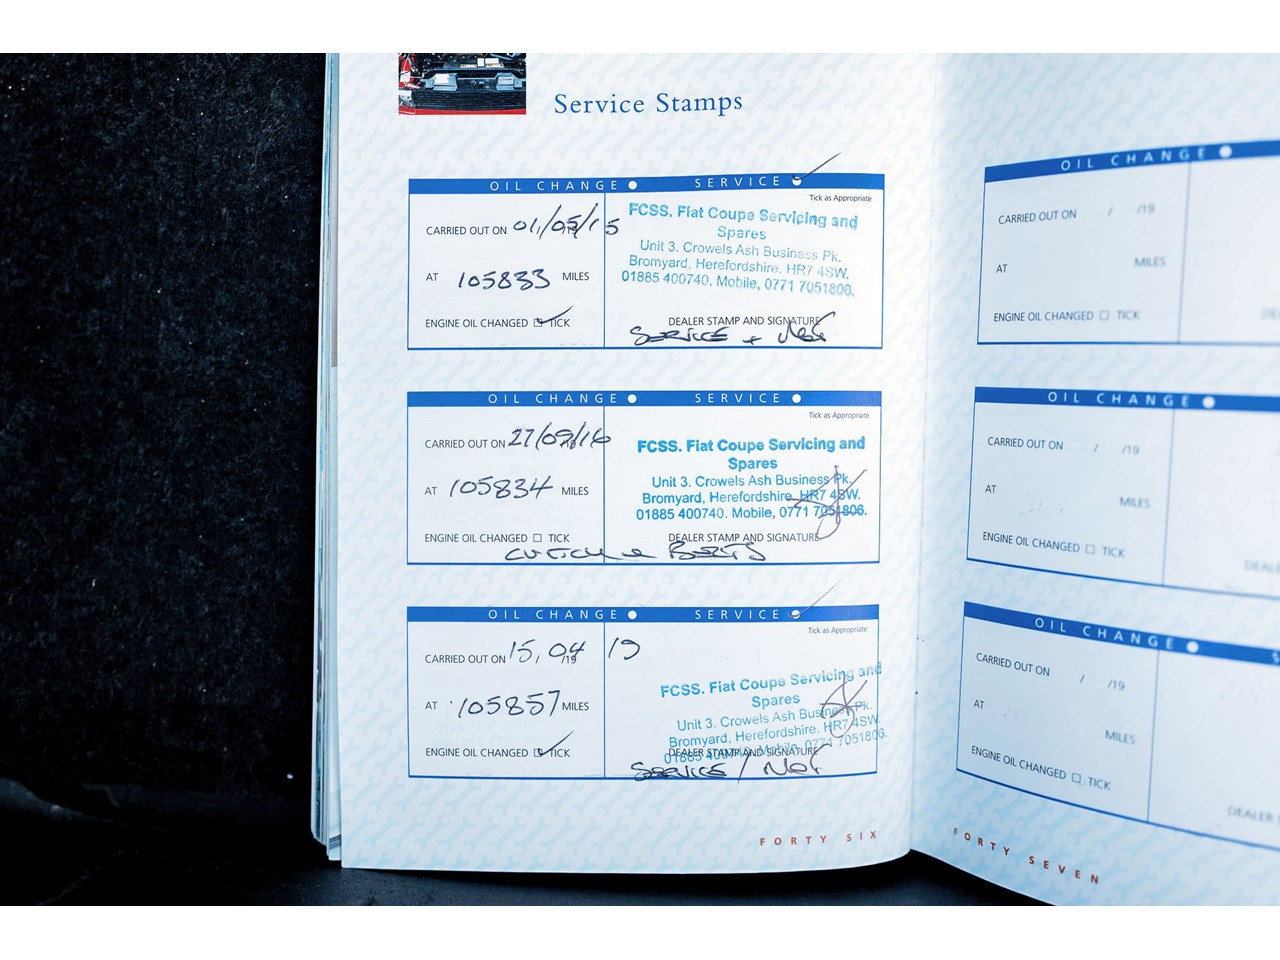 Service Stamps
OIL CHANGE SERVICE
Tick as Appropriate
CARRIED OUT ON 01/05/15
AT 105833 MILES
ENGINE OIL CHANGED TICK
FCSS. Fiat Coupe Servicing and
Spares
Unit 3. Crowels Ash Business Pk.
Bromyard, Herefordshire. HR7 4SW.
01885 400740. Mobile, 0771 7051806.
DEALER STAMP AND SIGNATURE
SERVICE + MOT
OIL CHANGE SERVICE
Tick as Appropriate
CARRIED OUT ON 27/09/16
AT 105834 MILES
ENGINE OIL CHANGED TICK
FCSS. Fiat Coupe Servicing and
Spares
Unit 3. Crowels Ash Business Pk.
Bromyard, Herefordshire. HR7 4SW.
01885 400740. Mobile, 0771 7051806.
DEALER STAMP AND SIGNATURE
BELTS
OIL CHANGE SERVICE
Tick as Appropriate
CARRIED OUT ON 15, 04 /19 19
AT 105857 MILES
ENGINE OIL CHANGED TICK
FCSS. Fiat Coupe Servicing and
Spares
Unit 3. Crowels Ash Business Pk.
Bromyard, Herefordshire. HR7 4SW.
01885 400740. Mobile, 0771 7051806.
DEALER STAMP AND SIGNATURE
SERVICE / MOT
FORTY SIX
OIL CHANGE
CARRIED OUT ON / /19
AT MILES
ENGINE OIL CHANGED TICK
OIL CHANGE
CARRIED OUT ON / /19
AT MILES
ENGINE OIL CHANGED TICK
DEALE
OIL CHANGE S
CARRIED OUT ON / /19
AT MILES
ENGINE OIL CHANGED TICK
DEALER S
FORTY SEVEN